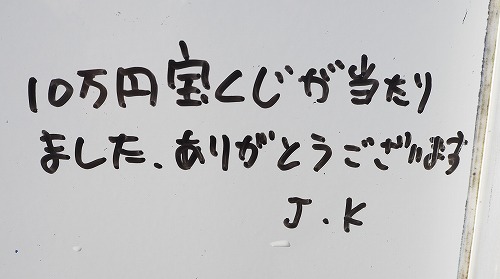 10万円宝くじが当たり
ました、ありがとうございます
J.K